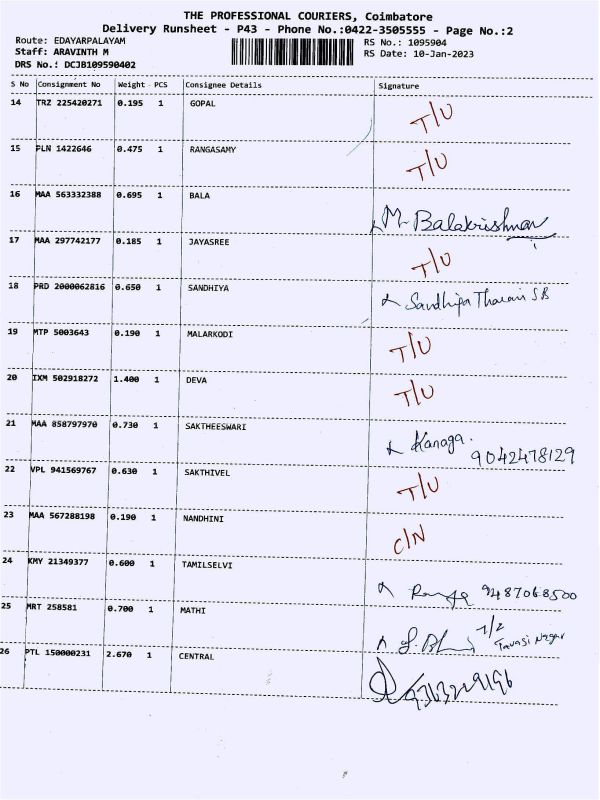 THE PROFESSIONAL COURIERS, Coimbatore
Delivery Runsheet - P43 - Phone No.:0422-3505555 - Page No.:2
Route: EDAYARPALAYAM
Staff: ARAVINTH M
DRS No.: DCJB109590402
RS No.: 1095904
RS Date: 10-Jan-2023
S No Consignment No Weight PCS Consignee Details Signature
14 TRZ 225420271 0.195 1 GOPAL T/U
15 PLN 1422646 0.475 1 RANGASAMY T/U
16 MAA 563332388 0.695 1 BALA M. Balakrishnan
17 MAA 297742177 0.185 1 JAYASREE T/U
18 PRD 2000062816 0.650 1 SANDHIYA Sandhiya Tharani S B
19 MTP 5003643 0.190 1 MALARKODI T/U
20 IXM 502918272 1.400 1 DEVA T/U
21 MAA 858797970 0.730 1 SAKTHEESWARI Kanaga.
9042478129
22 VPL 941569767 0.630 1 SAKTHIVEL T/U
23 MAA 567288198 0.190 1 NANDHINI C/N
24 KMY 21349377 0.600 1 TAMILSELVI 9487068500
25 MRT 258581 0.700 1 MATHI 7/2
Tavasi Nagar
26 PTL 150000231 2.670 1 CENTRAL